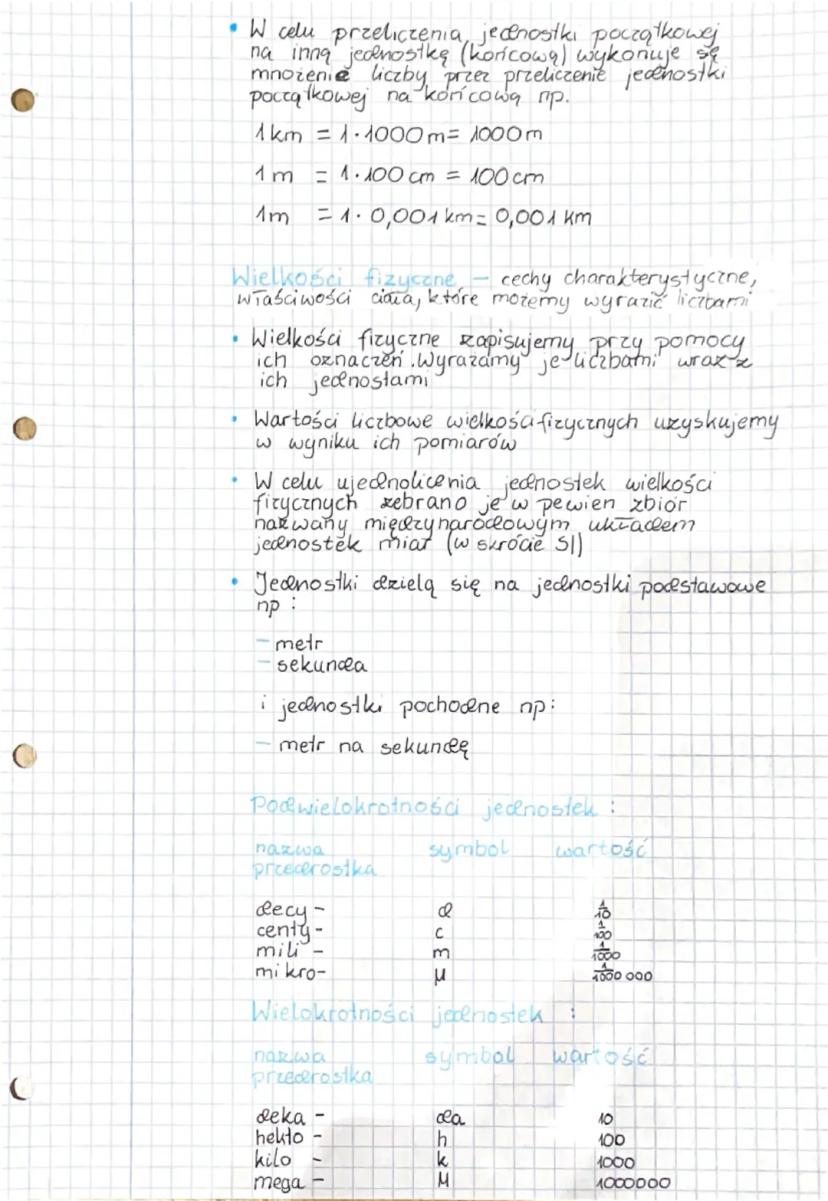 • W celu przeliczenia jednostki początkowej
na inną jednostkę (końcową) wykonuje się
mnożenie liczby przez przeliczenie jednostki
początkowej na końcową np.
1 km = 1 · 1000 m = 1000 m
1 m = 1 · 100 cm = 100 cm
1m = 1 · 0,001 km = 0,001 km
Wielkości fizyczne – cechy charakterystyczne,
właściwości ciała, które możemy wyrazić liczbami
• Wielkości fizyczne zapisujemy przy pomocy
ich oznaczeń. Wyrażamy je liczbami wraz z
ich jednostami
• Wartości liczbowe wielkości fizycznych uzyskujemy
w wyniku ich pomiarów
• W celu ujednolicenia jednostek wielkości
fizycznych zebrano je w pewien zbiór
nazwany międzynarodowym układem
jednostek miar (w skrócie SI)
• Jednostki dzielą się na jednostki podstawowe
np :
– metr
– sekunda
i jednostki pochodne np:
– metr na sekundę
Podwielokrotności jednostek :
nazwa symbol wartość
przedrostka
decy – d 1/10
centy – c 1/100
mili – m 1/1000
mikro- μ 1/1000 000
Wielokrotności jednostek :
nazwa symbol wartość
przedrostka
deka – da 10
hekto – h 100
kilo – k 1000
mega – M 1000000